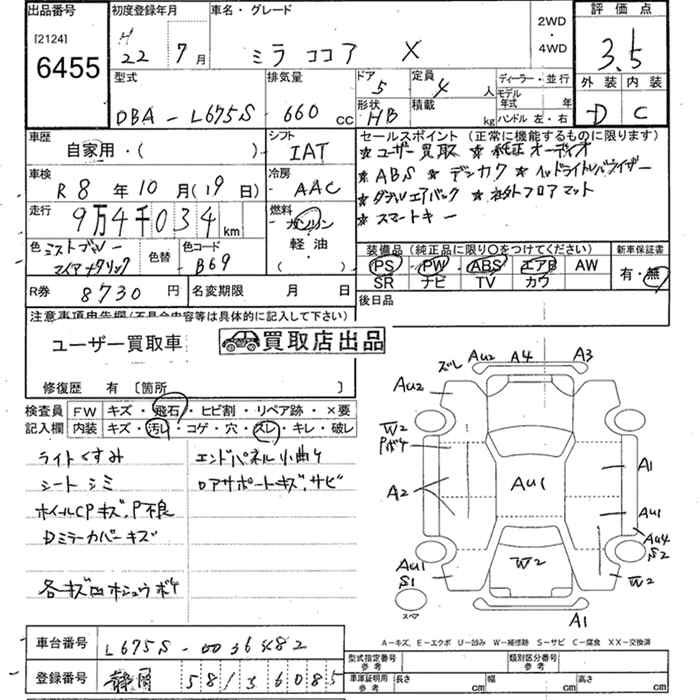 出品番号 初度登録年月 車名・グレード 2WD・4WD 評価点
[2124]
6455
H22年7月 ミラ ココア X
3.5
外装 内装
D C
型式 排気量 ドア 定員 ディーラー・並行
DBA-L675S 660cc 5 4人 モデル年式 年
形状 積載 ハンドル 左・右
HB kg
車歴 シフト セールスポイント (正常に機能するものに限ります)
自家用・( ) IAT
★ユーザー買取 ★純正オーディオ
★ABS ★デンカク ★ヘッドライトレベライザー
★ダブルエアバック ★社外フロアマット
★スマートキー
車検 冷房
R8年10月(19日) AAC
走行 燃料
9万4千034km ガソリン
軽油
( )
色 色替 色コード
ミストブルーマイカメタリック B69
装備品 (純正品に限り○をつけてください) 新車保証書
PS PW ABS エアB AW 有・無
SR ナビ TV カワ
R券 8730円 名変期限 月 日 後日品
注意事項申告欄(不具合内容等は具体的に記入して下さい)
ユーザー買取車 買取店出品
修復歴 有 [箇所 ]
検査員 FW キズ・飛石・ヒビ割・リペア跡・×要
記入欄 内装 キズ・汚レ・コゲ・穴・スレ・キレ・破レ
ライトくすみ エンドパネル小曲り
シートシミ ロアサポートキズ、サビ
ホイールCPキズ、P不良
Dミラーカバーキズ
各キズ凹ホシュウボケ
ズレ AU2 A4 A3
AU2
W2
Pボケ
A2
AU1
A1
AU1
AU4
S2
AU1
S1
W2
W2
スペア
A1
A-キズ、E-エクボ U-凹み W-補修跡 S-サビ C-腐食 XX-交換済
車台番号 L675S-0036482
登録番号 静岡 581 3 6085
型式指定番号 参考 類別区分番号 参考
車庫証明用 参考 長さ cm 幅 cm 高さ cm